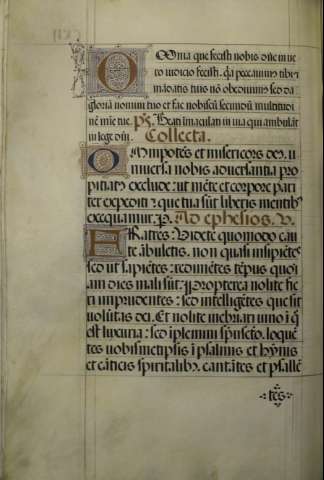 OMnia que fecisti nobis dñe in ue
ro iudicio fecisti. q̃a peccauimus tibi ⁊
mãdatis tuis nõ obediuimus sed da
gloriã nomini tuo et fac nobiscũ secundũ multitudi
nẽ mie tue. ps. Beati immaculati in uia qui ambulãt
in lege dñi. Collecta.
OMnipotẽs et misericors deꝰ. u
niuersa nobis aduersantia pro
pitiatꝰ exclude: ut mẽte et corpore pari
ter expediti: que tua sũt liberis mentibꝰ
exequamur. p. Ad ephesios. V.
FRatres: Videte quomodo cau
te ãbuletis. non quasi insipiẽtes
sed ut sapiẽtes: redimẽtes tẽpus quoñi
am dies mali sũt. Propterea nolite fie
ri imprudentes: sed intelligẽtes que sit
volũtas dei. Et nolite inebriari uino i q̃
est luxuria: sed iplemini spũ scto. loquẽ
tes uobismetipsis i psalmis et hỹnis
et cãticis spiritalibꝰ. cantãtes et psallẽ
tes